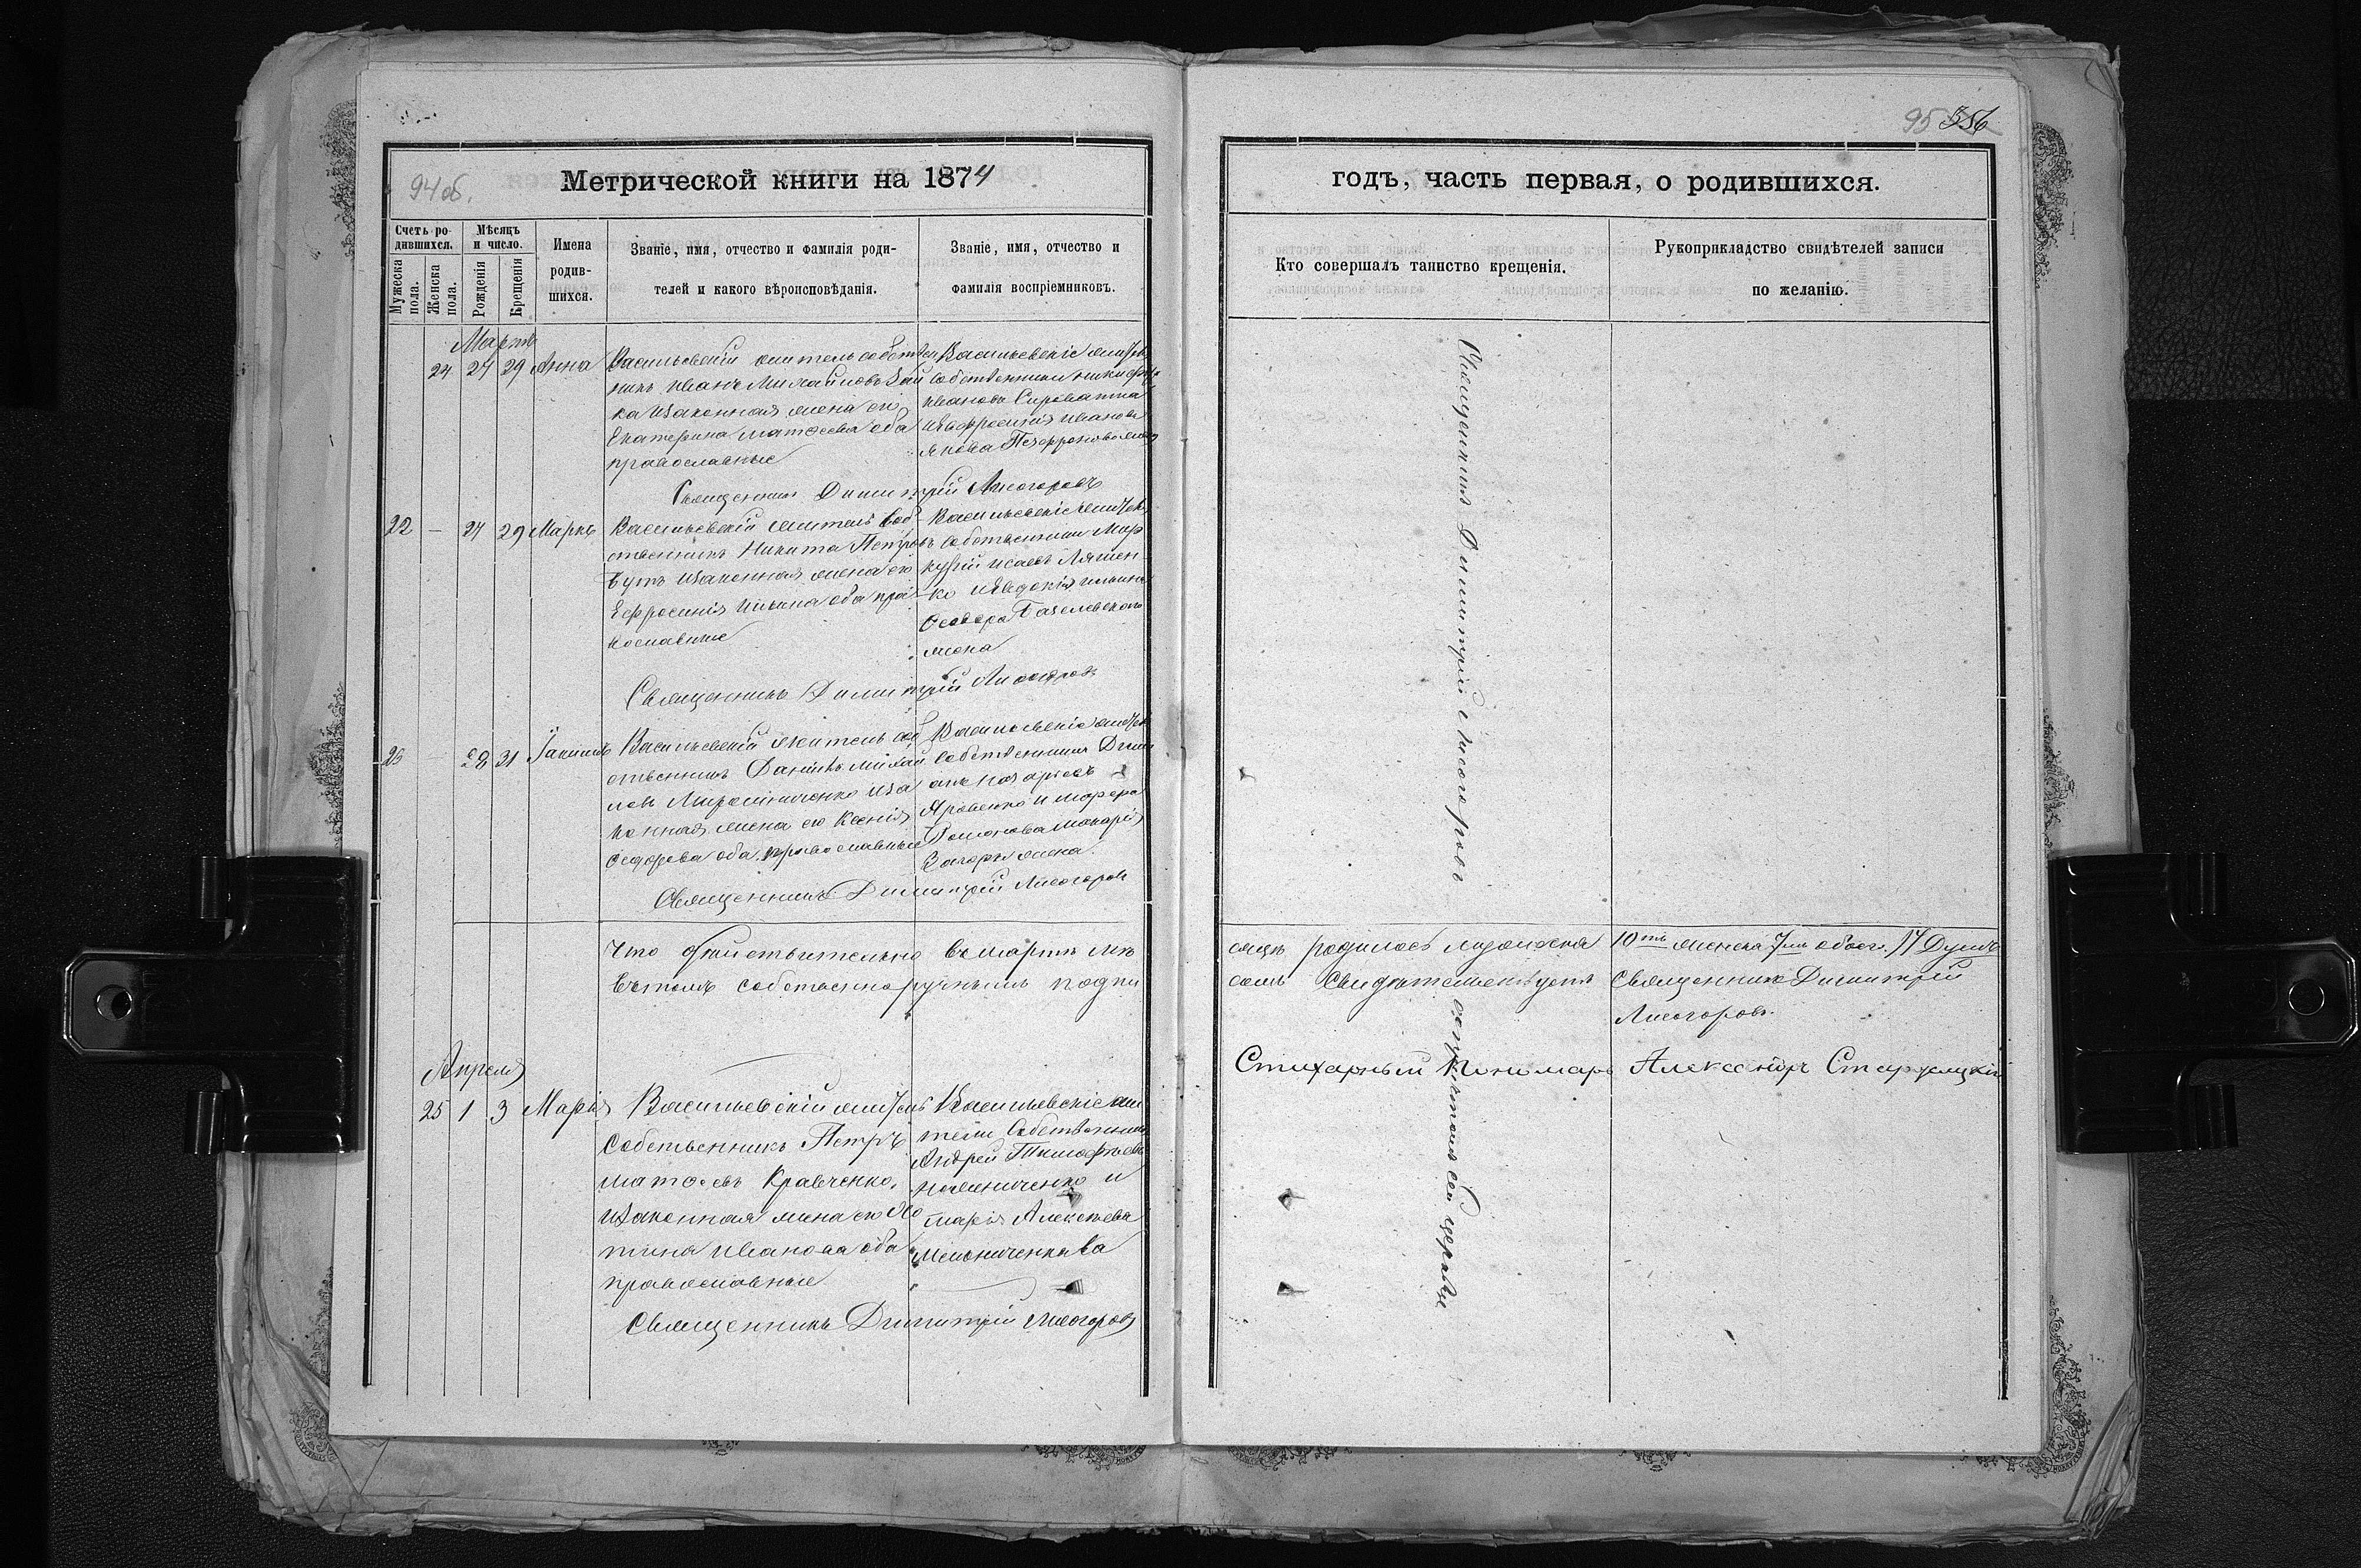 94 об.
Метрической книги на 1874
Счетъ ро-
дившихся.
Мужеска пола.
Женска пола.
Мѣсяцъ
и число.
Рожденія
Крещенія
Имена
родив-
шихся.
Званіе, имя, отчество и фамилія роди-
телей и какого вѣроисповѣданія.
Званіе, имя, отчество и
фамилія воспріемниковъ.
Мартъ
24 27 29 Анна
Васильевскій житель собствен
никъ Иванъ Михайловъ Зай
ка изаконная жена его
Екатерина Матѳеева оба
православные
Васильевскіе жители
собственники Никифоръ
Ивановъ Сироватка
иЕвфросинія Иванова
Священникъ Димитрій Лисогоровъ
22 — 24 29 Маркъ
Васильевскій житель соб
ственникъ Никита Петровъ
изаконная жена его
Ефросинія Ильина оба пра
вославные
Васильевскіе жители
собственники Мер
курій Исаевъ Ляшен
ко иЕвдокія Ильина
жена
Священникъ Димитрій Лисогоровъ
28 31 Іакимъ
Васильевскій житель соб
ственникъ Даніилъ Михай
ловъ Мирошниченко иза
конная жена его Ксенія
Ѳедорова оба православные
Васильевскіе жители
собственники
Яровенко и
жена
Священникъ Димитрій Лисогоровъ
Что дѣйствительно въ мартѣ мѣ
въ томъ собственноручнымъ подпи
Апреля
25 1 3 Марія
Васильевскій житель
собственникъ Петръ
Матѳеевъ Кравченко,
изаконная жена его Хри
тина Иванова оба
православные
Васильевскіе жи
тели собственники
Андрей Тимофѣевъ
и
Марія Алексѣева
Мельниченкова
Священникъ Димитрій Лисогоровъ
95 356
годъ, часть первая, о родившихся.
Кто совершалъ таинство крещенія.
Рукоприкладство свидѣтелей записи
по желанію.
Священникъ Димитрій Лисогоровъ
сяцѣ родилось мужеска 10ть женска 7мь обоего 17 Душъ
сомъ свидѣтельствуетъ Священникъ Димитрій
Лисогоровъ.
Стихарный Пономарь Александръ